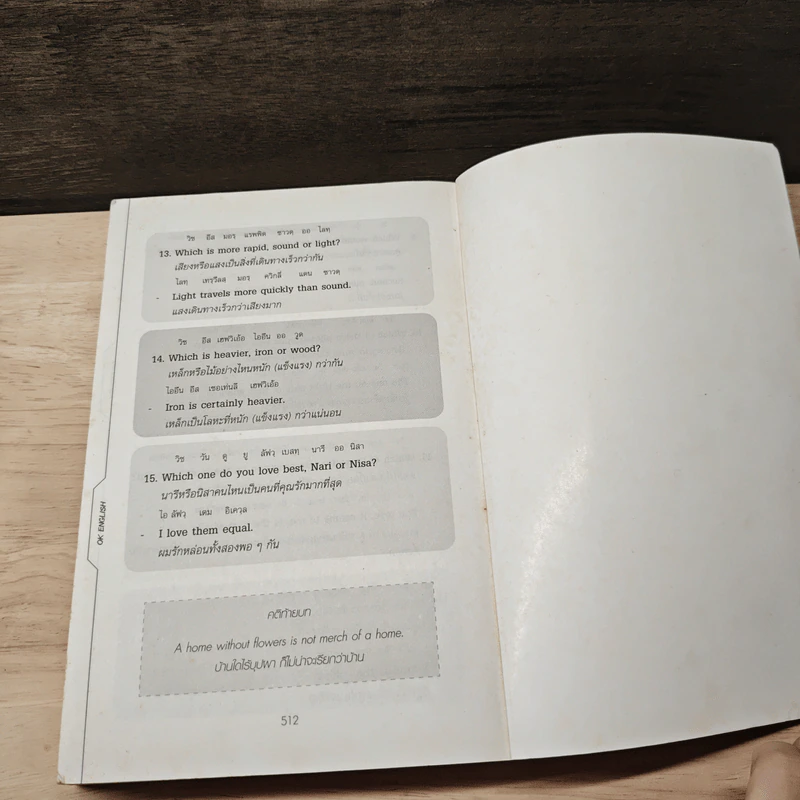 วิช อีส มอรฺ แรพพิด ซาวดฺ ออ ไลทฺ
13. Which is more rapid, sound or light?
เสียงหรือแสงเป็นสิ่งที่เดินทางเร็วกว่ากัน
ไลทฺ เทรฺวีลสฺ มอรฺ ควิกลี แดน ซาวดฺ
- Light travels more quickly than sound.
แสงเดินทางเร็วกว่าเสียงมาก
วิช อีส เฮฟวิเอ้อ ไออึน ออ วูด
14. Which is heavier, iron or wood?
เหล็กหรือไม้อย่างไหนหนัก (แข็งแรง) กว่ากัน
ไออึน อีส เซอเท่นลิ เฮฟวิเอ้อ
- Iron is certainly heavier.
เหล็กเป็นโลหะที่หนัก (แข็งแรง) กว่าแน่นอน
วิช วัน ดู ยู ลัฟวฺ เบสทฺ นารี ออ นิสา
15. Which one do you love best, Nari or Nisa?
นารีหรือนิสาคนไหนเป็นคนที่คุณรักมากที่สุด
ไอ ลัฟวฺ เดม อีเควฺล
- I love them equal.
ผมรักหล่อนทั้งสองพอ ๆ กัน
OK ENGLISH
คติท้ายบท
A home without flowers is not merch of a home.
บ้านใดไร้บุปผา ก็ไม่น่าจะเรียกว่าบ้าน
512